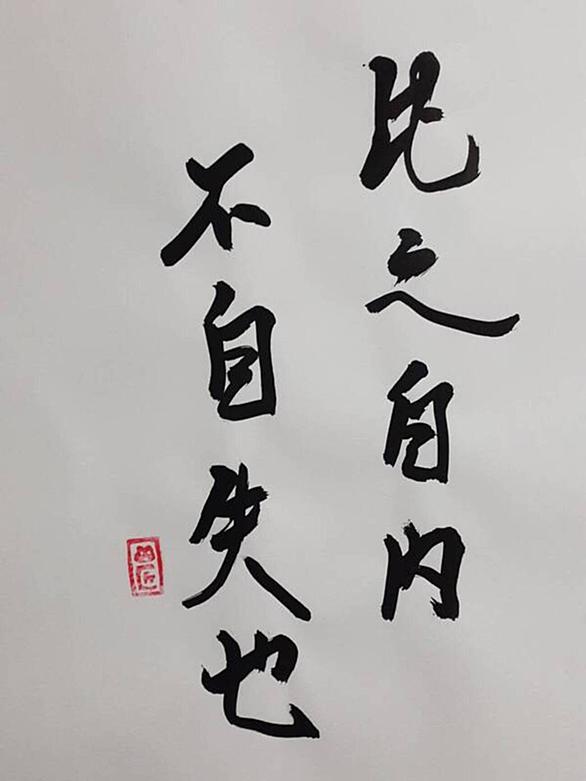 比之自内
不自失也